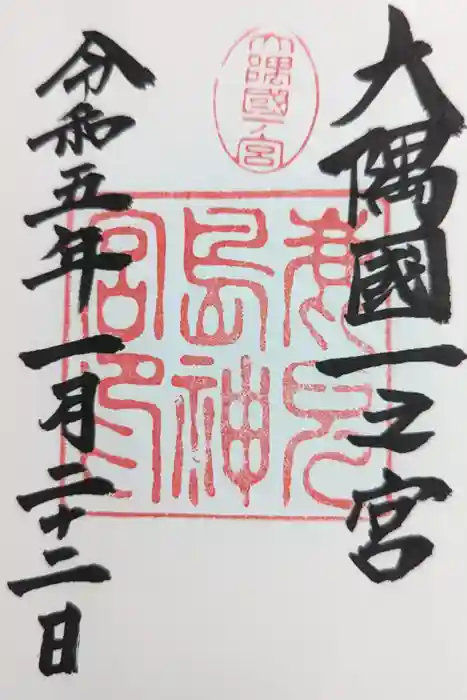 大隅國一之宮
大隅國一宮
鹿児
島神
宮印
令和五年一月二十二日